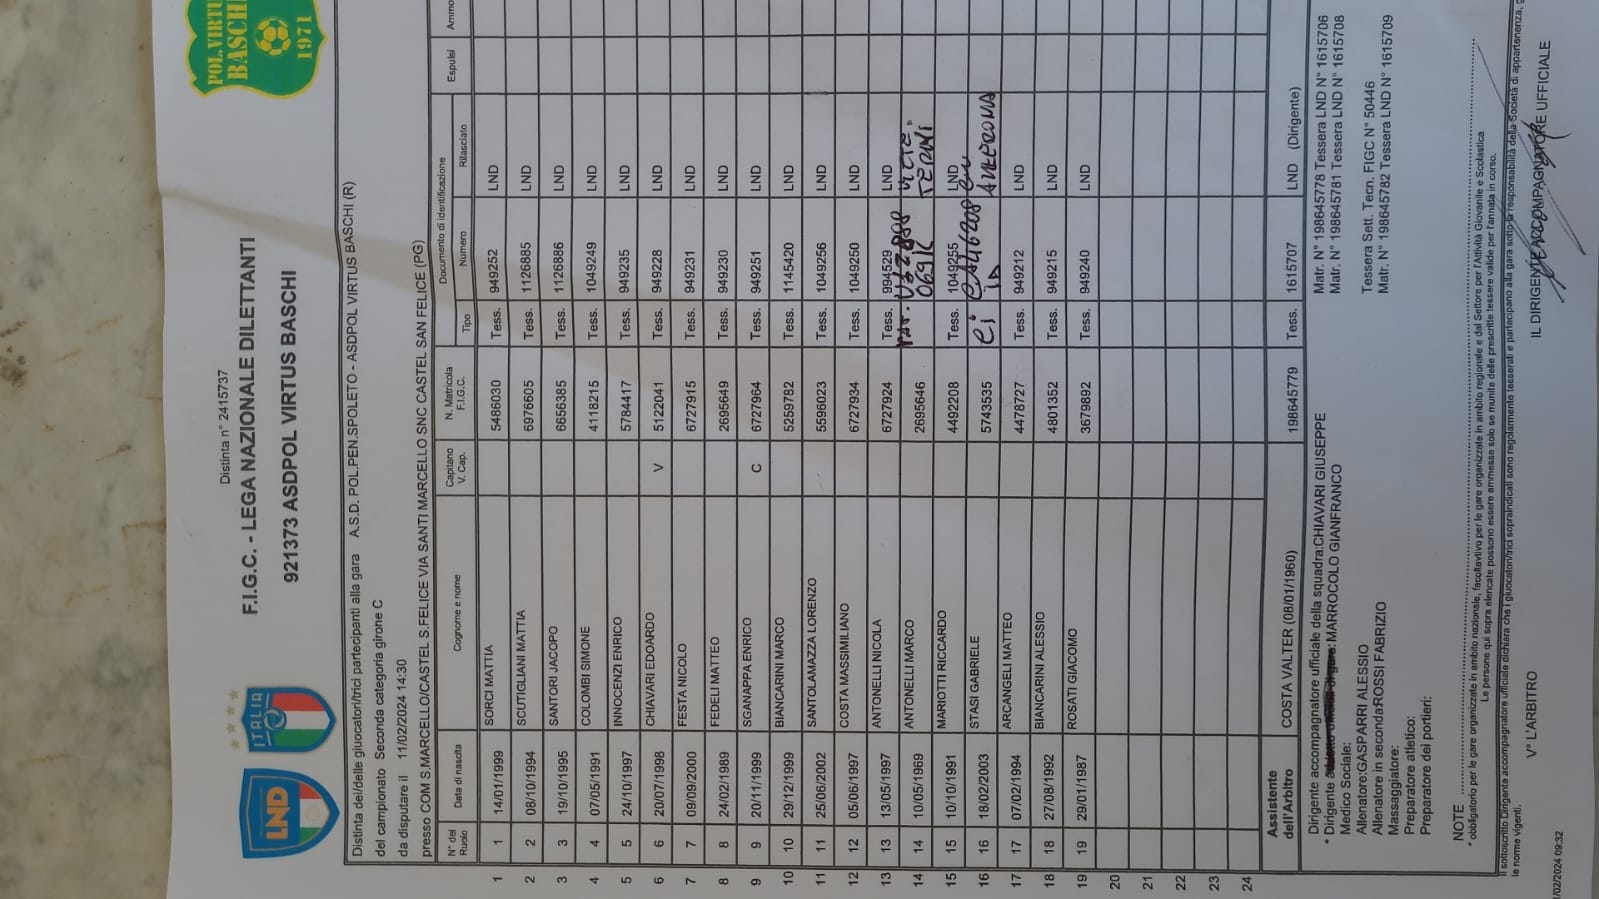 POL.VIRTUS
BASCHI
1971
LND
ITALIA
Distinta n° 2415737
F.I.G.C. - LEGA NAZIONALE DILETTANTI
921373 ASDPOL VIRTUS BASCHI
Distinta dei/delle giuocatori/trici partecipanti alla gara A.S.D. POL.PEN.SPOLETO - ASDPOL VIRTUS BASCHI (R)
del campionato Seconda categoria girone C
da disputare il 11/02/2024 14:30
presso COM S.MARCELLO/CASTEL S.FELICE VIA SANTI MARCELLO SNC CASTEL SAN FELICE (PG)
N° del Ruolo Data di nascita Cognome e nome Capitano V. Cap. N. Matricola F.I.G.C. Documento di identificazione Tipo Numero Rilasciato Espulsi
1 1 14/01/1999 SORCI MATTIA 5486030 Tess. 949252 LND
2 2 08/10/1994 SCUTIGLIANI MATTIA 6976605 Tess. 1126885 LND
3 3 19/10/1995 SANTORI JACOPO 6656385 Tess. 1126886 LND
4 4 07/05/1991 COLOMBI SIMONE 4118215 Tess. 1049249 LND
5 5 24/10/1997 INNOCENZI ENRICO 5784417 Tess. 949235 LND
6 6 20/07/1998 CHIAVARI EDOARDO V 5122041 Tess. 949228 LND
7 7 09/09/2000 FESTA NICOLO 6727915 Tess. 949231 LND
8 8 24/02/1989 FEDELI MATTEO 2695649 Tess. 949230 LND
9 9 20/11/1999 SGNAPPA ENRICO C 6727964 Tess. 949251 LND
10 10 29/12/1999 BIANCARINI MARCO 5259782 Tess. 1145420 LND
11 11 25/06/2002 SANTOLAMAZZA LORENZO 5596023 Tess. 1049256 LND
12 12 05/06/1997 COSTA MASSIMILIANO 6727934 Tess. 1049250 LND
13 13 13/05/1997 ANTONELLI NICOLA 6727924 Tess. 994529 LND
14 14 10/05/1969 ANTONELLI MARCO 2695646 TERNI
15 15 10/10/1991 MARIOTTI RICCARDO 4492208 Tess. 1049255 LND
16 16 18/02/2003 STASI GABRIELE 5743535
17 17 07/02/1994 ARCANGELI MATTEO 4478727 Tess. 949212 LND
18 18 27/08/1992 BIANCARINI ALESSIO 4801352 Tess. 949215 LND
19 19 29/01/1987 ROSATI GIACOMO 3679892 Tess. 949240 LND
20
21
22
23
24
Assistente dell'Arbitro COSTA VALTER (08/01/1960) 198645779 Tess. 1615707 LND (Dirigente)
Dirigente accompagnatore ufficiale della squadra:CHIAVARI GIUSEPPE Matr. N° 198645778 Tessera LND N° 1615706
* Dirigente MARROCOLO GIANFRANCO Matr. N° 198645781 Tessera LND N° 1615708
Medico Sociale:
Allenatore:GASPARRI ALESSIO Tessera Sett. Tecn. FIGC N° 50446
Allenatore in seconda:ROSSI FABRIZIO Matr. N° 198645782 Tessera LND N° 1615709
Massaggiatore:
Preparatore atletico:
Preparatore dei portieri:
NOTE
* obbligatorio per le gare organizzate in ambito nazionale, facoltativo per le gare organizzate in ambito regionale e dal Settore per l'Attività Giovanile e Scolastica
Le persone qui sopra elencate possono essere ammesse solo se munite delle prescritte tessere valide per l'annata in corso.
Il sottoscritto Dirigente accompagnatore ufficiale dichiara che i giuocatori/trici sopraindicati sono regolarmente tesserati e partecipano alla gara sotto la responsabilità della Società di appartenenza,
le norme vigenti.
V° L'ARBITRO IL DIRIGENTE ACCOMPAGNATORE UFFICIALE
/02/2024 09:32